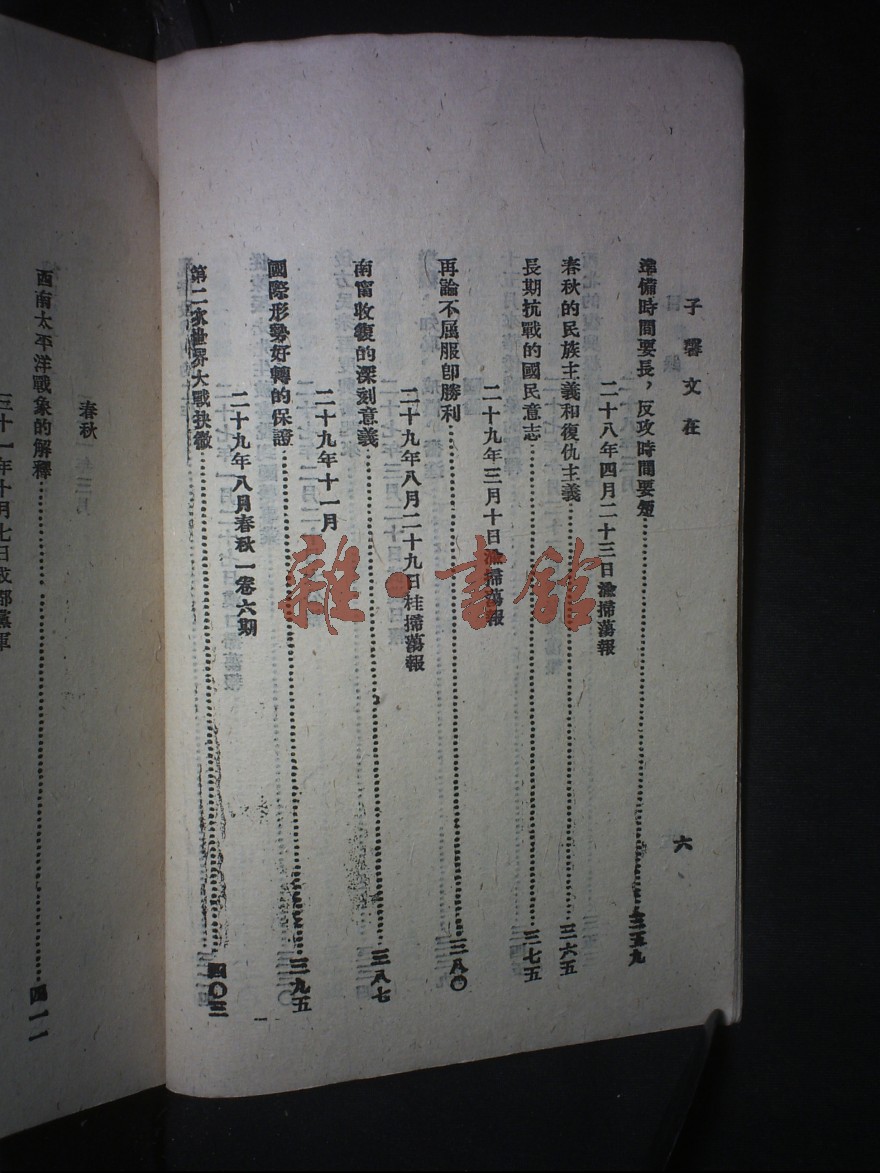 子馨文在
六
準備時間要長，反攻時間要短……三五九
二十八年四月二十三日渝掃蕩報
春秋的民族主義和復仇主義……三六五
長期抗戰的國民意志……三七五
二十九年三月十日渝掃蕩報
再論不屈服卽勝利……三八〇
二十九年八月二十九日桂掃蕩報
南甯收復的深刻意義……三八七
二十九年十一月
國際形勢好轉的保證……三九五
二十九年八月春秋一卷六期
第二次世界大戰抉微……四〇三
春秋
西南太平洋戰象的解釋……四一一
三十一年十月七日成都黨軍
雜·書館